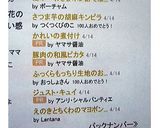 花の
い感
by ポーチャム
さつま芋の胡麻キンピラ 4/14
by つくつくぴのこ 100人おめでとう!
かれいの煮付け 4/14
PR by ヤマサ醤油
豚肉の和風ピカタ 4/14
PR by ヤマサ醤油
ふっくらもっちり生地のお… 4/14
by おっしょさん 100人おめでとう!
ジュスト・キュイ 4/14
PR by アンリ・シャルパンティエ
えのきとちくわのマヨポン… 4/14
by Lantana
バックナンバー